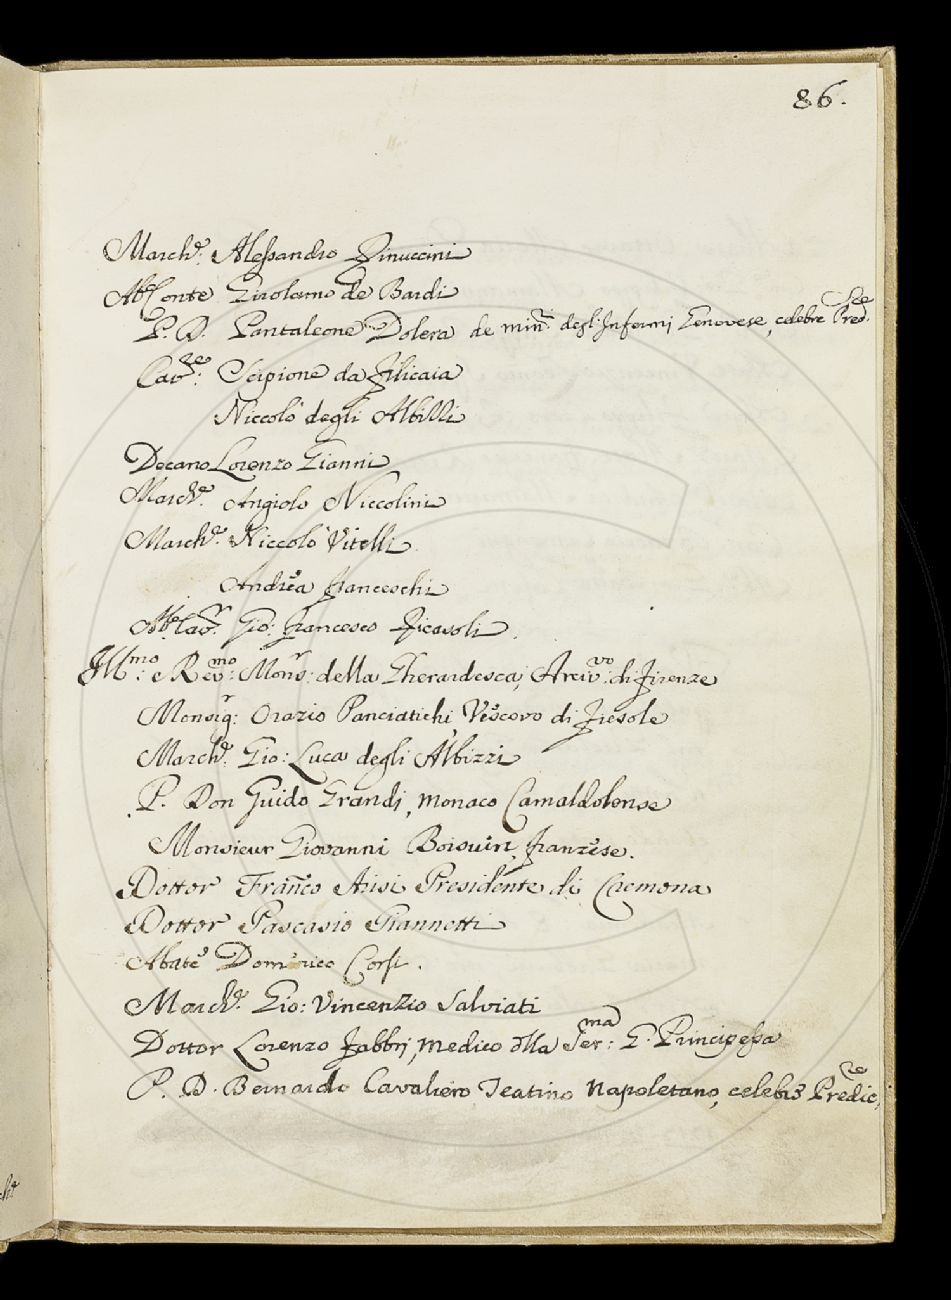 86.
March.e Alessandro Rinuccini
Ab. Conte Girolamo de Bardi
P. D. Pantaleone Dolera de min. degl'Infermj Genovese, celebre Pred.re
Cav.re: Scipione da Filicaia
Niccolò degli Albilli
Decano Lorenzo Gianni
March.e Angiolo Niccolini
March.e Niccolò Vitelli
Andrea Franceschi
Ab. Cav.r: Gio: Francesco Ricasoli.
Ill.mo: e Rev.mo: Mons.r: della Gherardesca, Arciv.vo: di Firenze
Monsig.r: Orazio Panciatichi Vescovo di Fiesole
March.e Gio: Luca degli Albizzi
P. Don Guido Grandj, Monaco Camaldolense
Monsieur Giovanni Boisuin, Franzese.
Dottor Fran.co Arisi Presidente di Cremona
Dottor Pascasio Giannetti
Abate Domenico Corsi.
March.e Gio: Vincenzio Salviati
Dottor Lorenzo Fabbrj, Medico della Ser.ma: G. Principessa
P. D. Bernardo Cavaliero Teatino Napoletano, celebre Predic.re